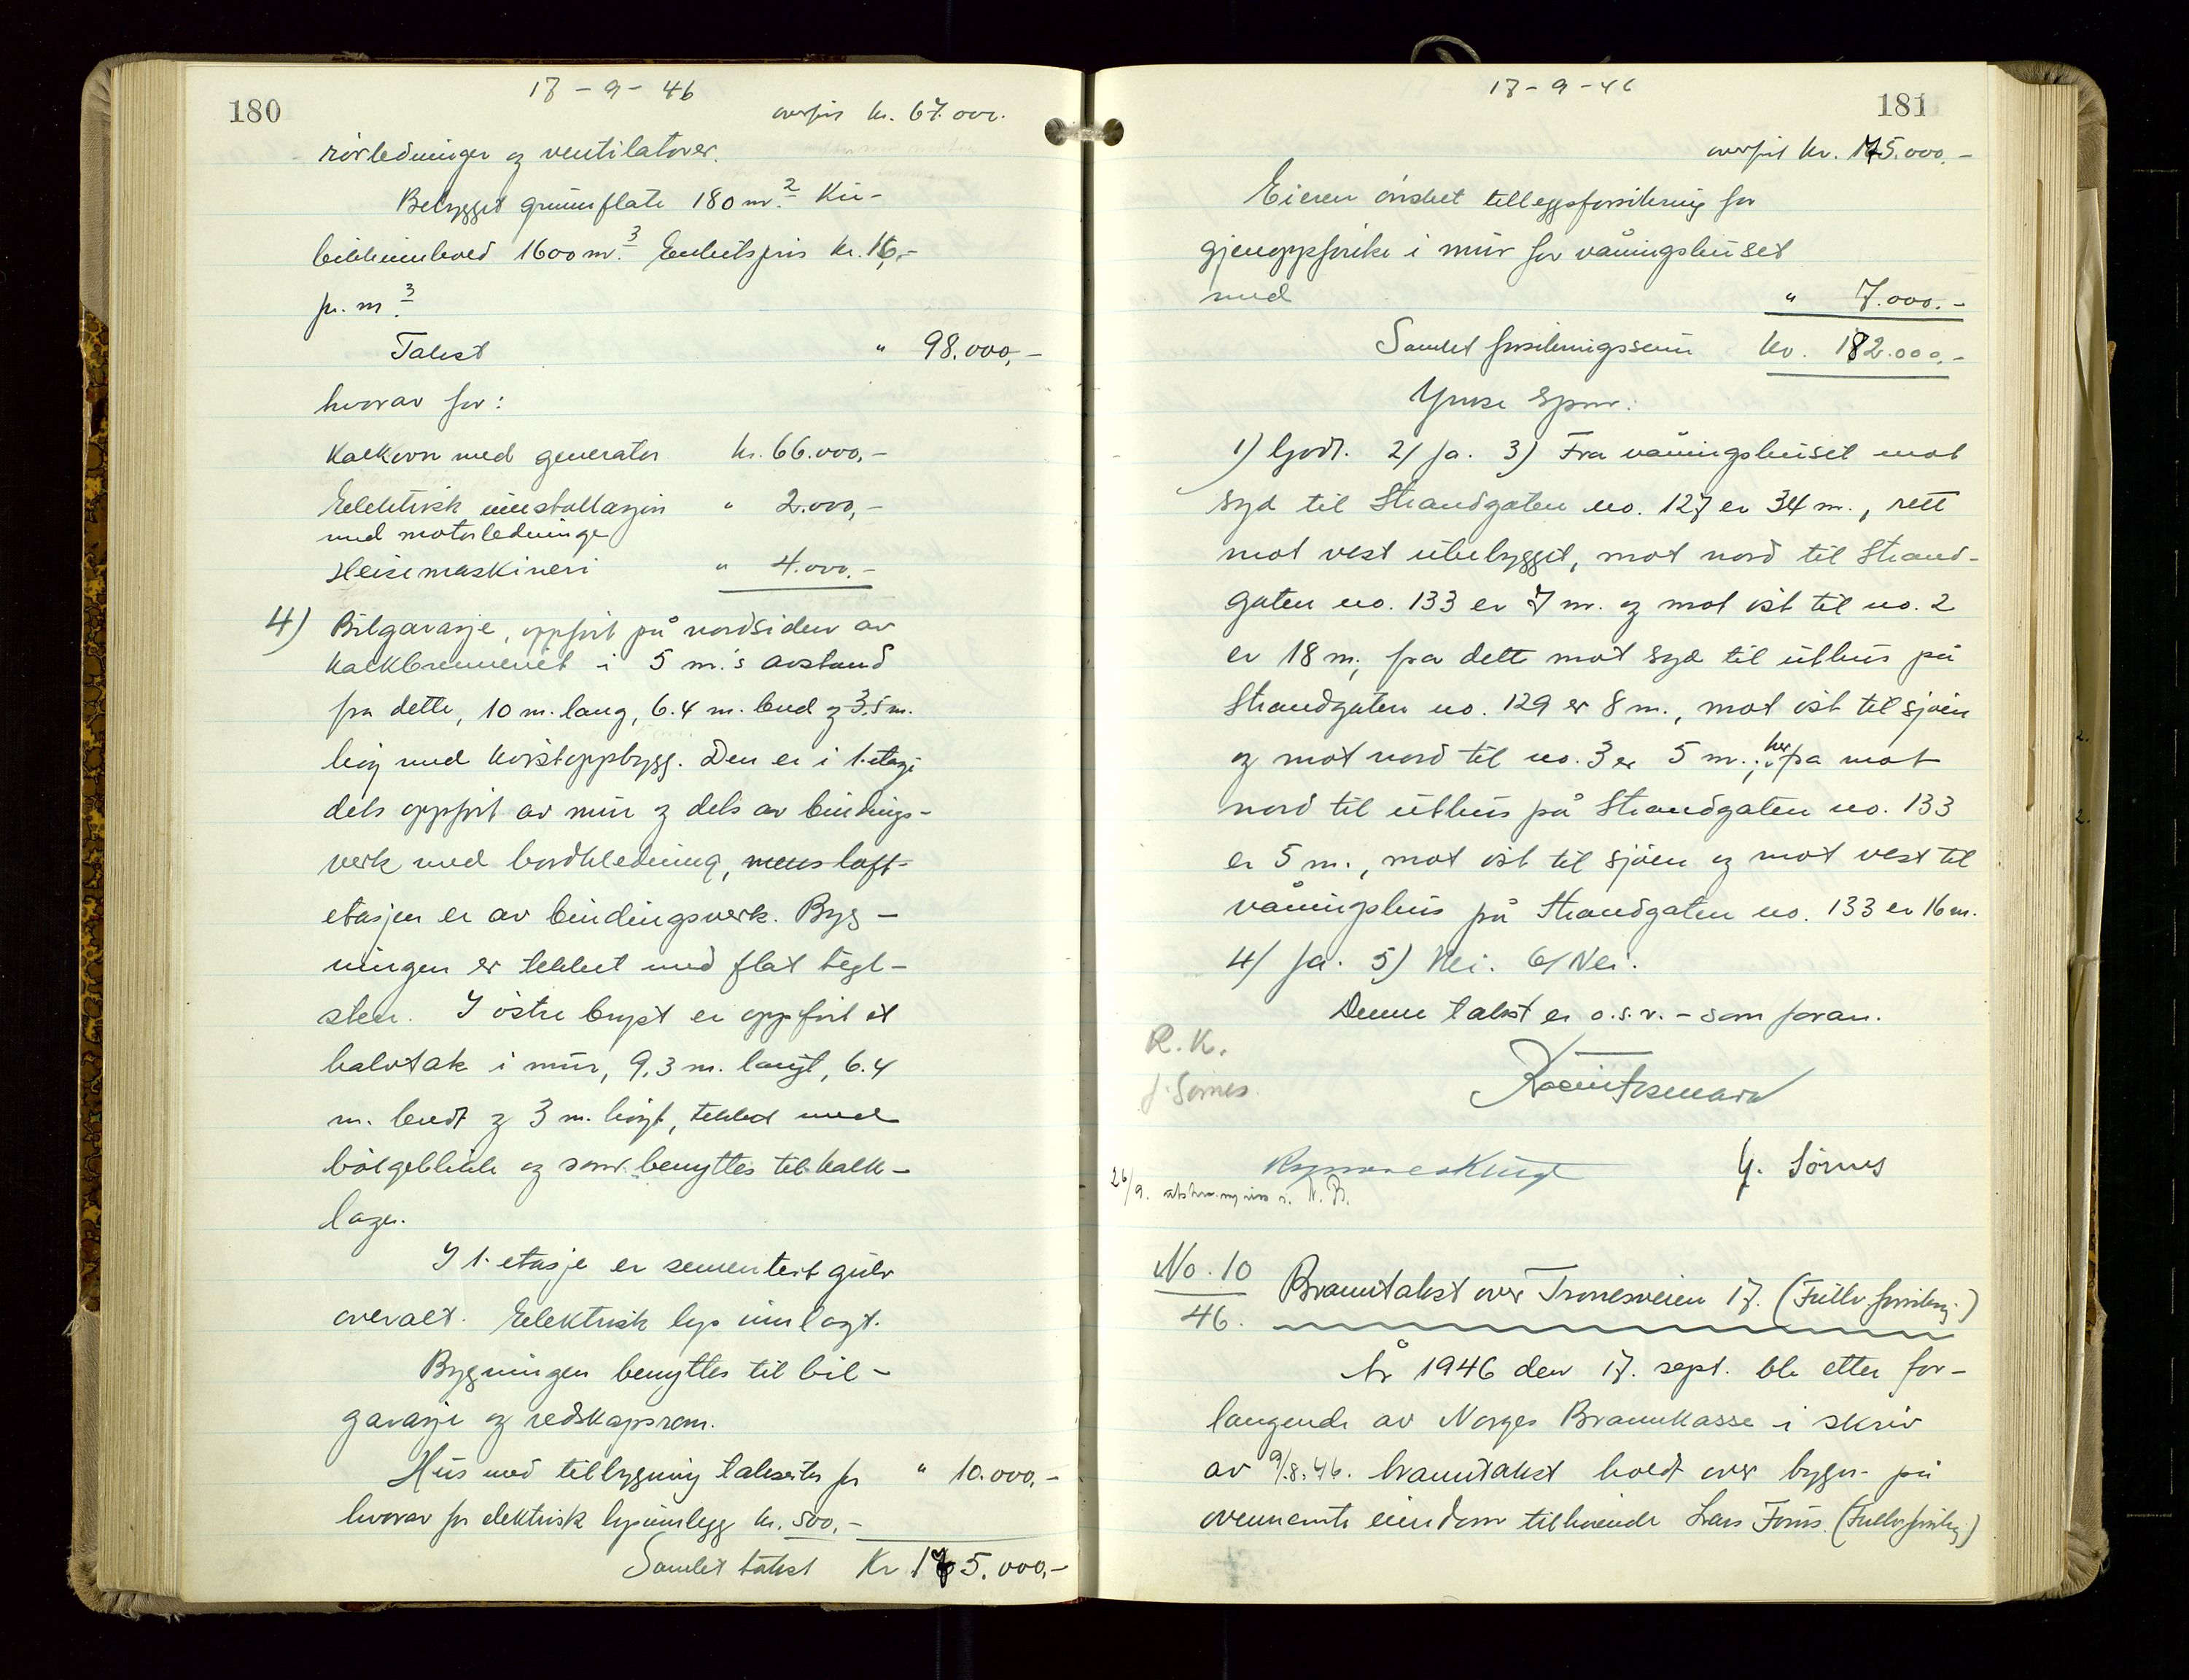 180
17-9-46
overført kr. 67.000.
rörledninger og ventilatorer.
Bebygget grunnflate 180 m². Ku-
bikkinnhold 1600 m³. Enhetspris kr. 16,-
pr. m³.
Takst " 98.000,-
hvorav for:
Kalkovn med generator kr. 66.000,-
Elektrisk installasjon " 2.000,-
med motorledninge
Heisemaskineri " 4.000.-
4) Bilgarasje, oppfört på nordsiden av
kalkbrenneriet i 5 m.'s avstand
fra dette, 10 m. lang, 6.4 m. bred og 3.5 m.
höy med kvistoppbygg. Den er i 1. etasje
dels oppfört av mur og dels av bindings-
verk med bordkledning, mens loft-
etasjen er av bindingsverk. Byg-
ningen er tekket med flat tegl-
sten. I östre bryst er oppfört et
halvtak i mur, 9.3 m. langt, 6.4
m. bredt og 3 m. höyt, tekket med
bölgeblikk og som benyttes til kalk-
lager.
I 1. etasje er sementert gulv
overalt. Elektrisk lys innlagt.
Bygningen benyttes til bil-
garasje og redskapsrom.
Hus med tilbygning takseres for " 10.000,-
hvorav for elektrisk lysinnlegg kr. 500,-
Samlet takst Kr 175.000,-
17-9-46
181
overfört kr. 175.000,-
Eieren önsket tilleggsforsikring for
gjenoppförelse i mur for våningshuset
med " 7.000.-
Samlet forsikringssum kr. 182.000,-
Ymse spm:
1) Godt. 2) Ja. 3) Fra våningshuset mot
syd til Strandgaten no. 127 er 34 m., rett
mot vest ubebygget, mot nord til Strand-
gaten no. 133 er 7 m. og mot öst til no. 2
er 18 m; fra dette mot syd til uthus på
Strandgaten no. 129 er 8 m., mot öst til sjöen
og mot nord til no. 3 er 5 m.; herfra mot
nord til uthus på Strandgaten no. 133
er 5 m., mot öst til sjöen og mot vest til
våningshus på Strandgaten no. 133 er 16 m.
4) Ja. 5) Nei. 6) Nei.
Denne takst er o.s.v. - som foran.
R. K.
J. Sörnes
G. Sörnes
26/9. N. B.
No. 10
46.
Branntakst over Tronesveien 17. (Fullv. forsikring.)
År 1946 den 17. sept. ble etter for-
langende av Norges Brannkasse i skriv
av 9/8.46. branntakst holdt over bygn. på
ovennemte eiendom tilhörende Lars Foms. (Fullv. forsikring)